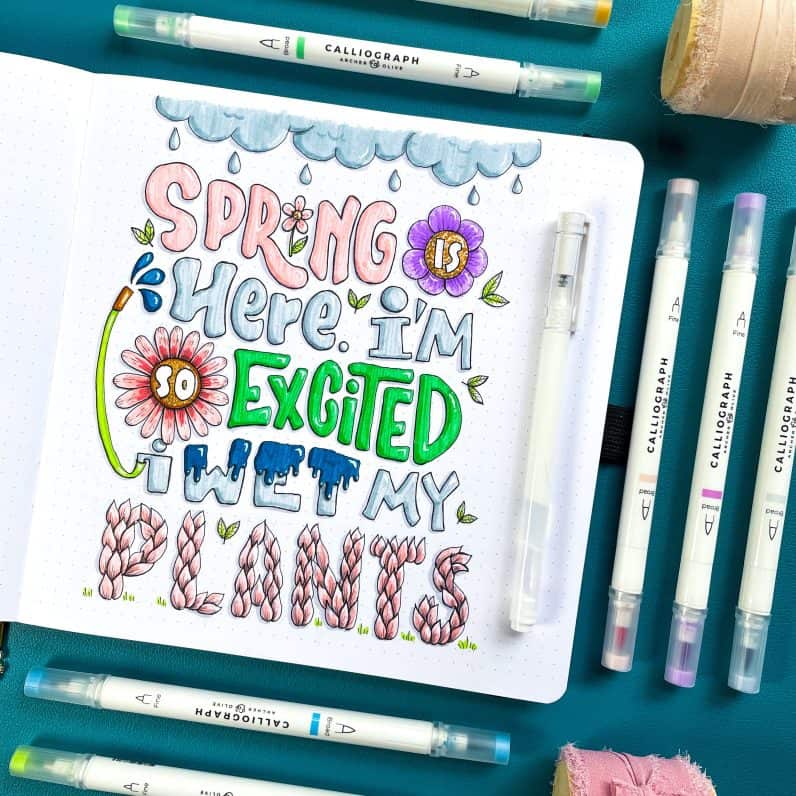 CALLIOGRAPH
ARCHER & OLIVE
Broad
Fine
SPRING IS
Here. i'M
SO EXCiTED
i WET MY
PLANTS
Fine
CALLIOGRAPH
ARCHER & OLIVE
Broad
Fine
CALLIOGRAPH
ARCHER & OLIVE
Broad
Fine
CALLIOGRAPH
ARCHER & OLIVE
Broad
Fine
CALLIOGRAPH
ARCHER & OLIVE
Broad
Fine
CALLIOGRAPH